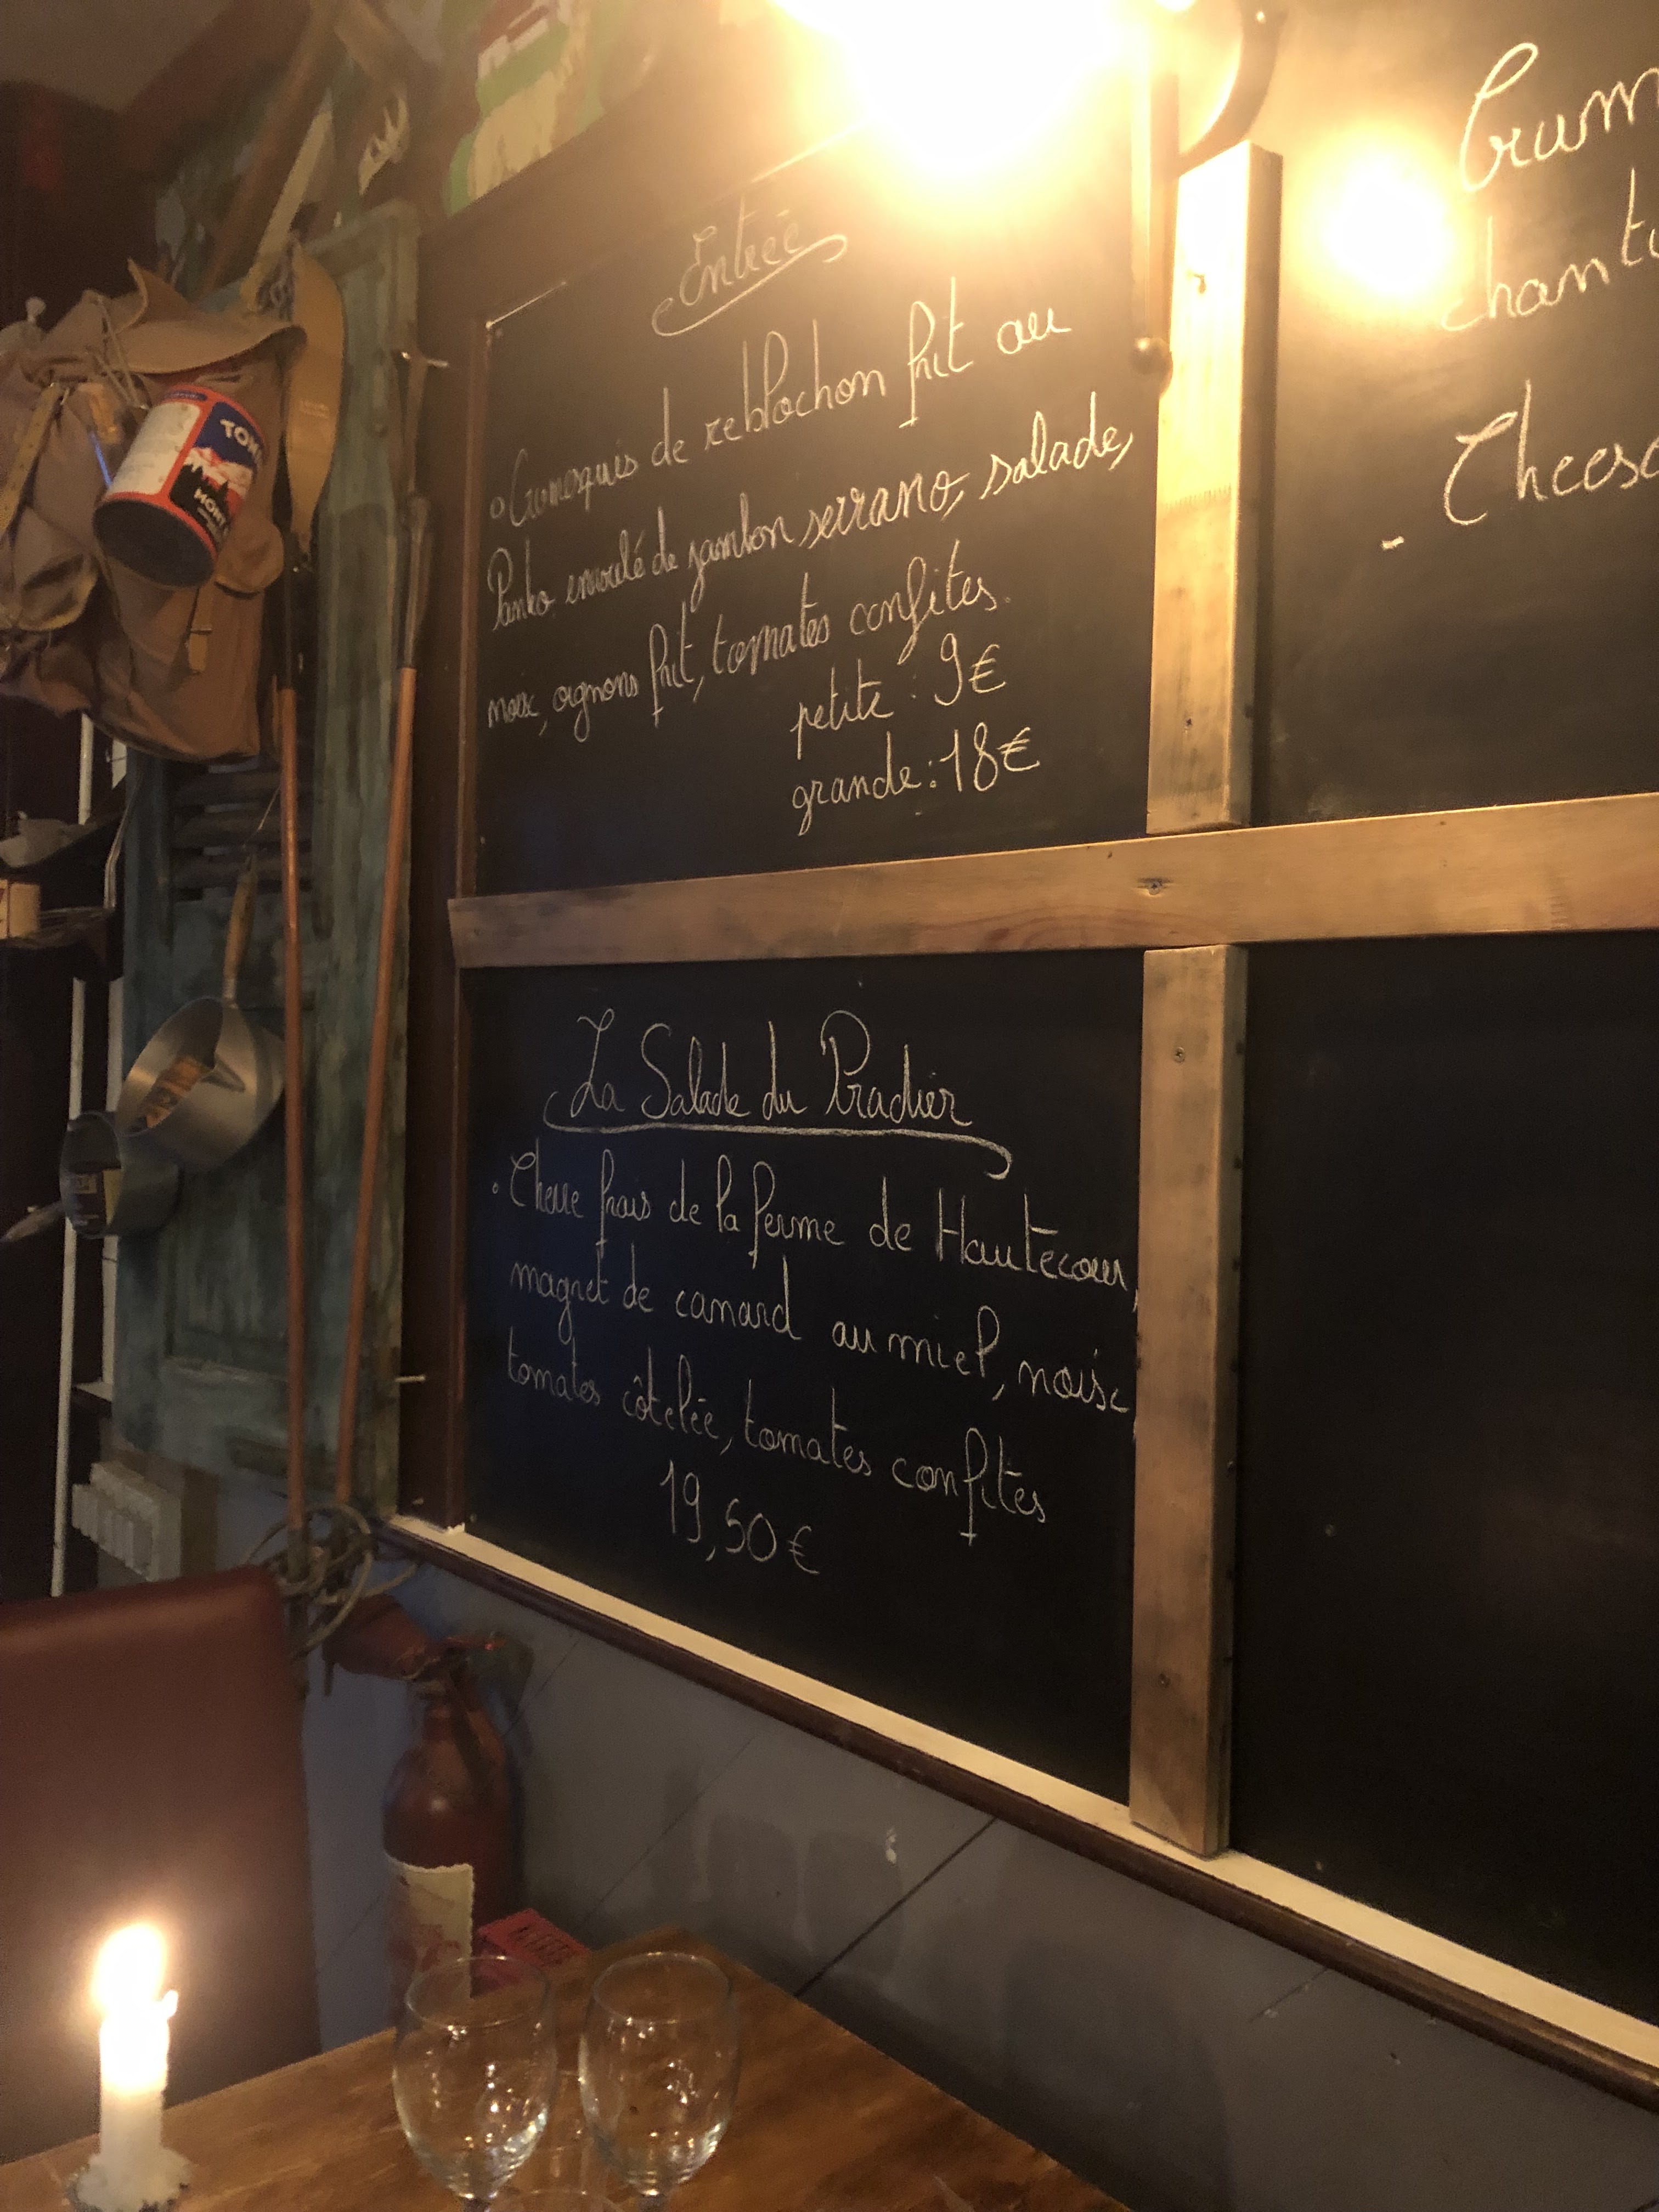 Entrée
Cromesquis de reblochon frit au
Panko enroulé de jambon serrano, salade,
noix, oignons frit, tomates confites.
petite : 9€
grande : 18€
La Salade du Pradier
Chevre frais de la ferme de Hautecour,
magret de canard au miel, noise
tomates côtelée, tomates confites
19,50€
Crum
chanti
- Cheesc
TON
MONT